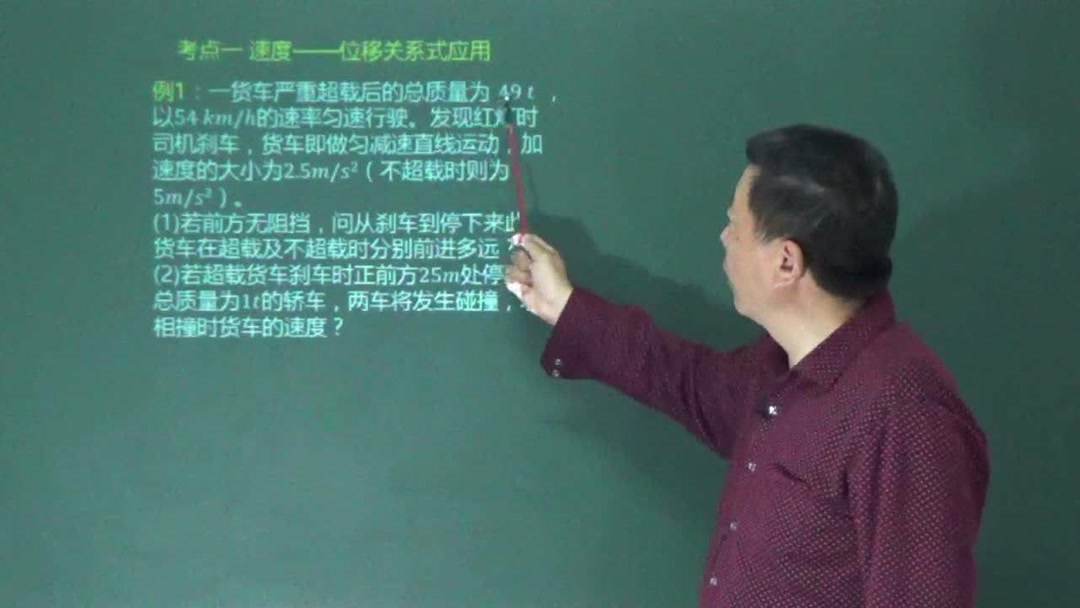 考点一 速度——位移关系式应用
例1：一货车严重超载后的总质量为 49 t ，
以54 km/h的速率匀速行驶。发现红灯时
司机刹车，货车即做匀减速直线运动，加
速度的大小为2.5m/s²（不超载时则为
5m/s²）。
(1)若前方无阻挡，问从刹车到停下来此
货车在超载及不超载时分别前进多远
(2)若超载货车刹车时正前方25m处停
总质量为1t的轿车，两车将发生碰撞，
相撞时货车的速度？